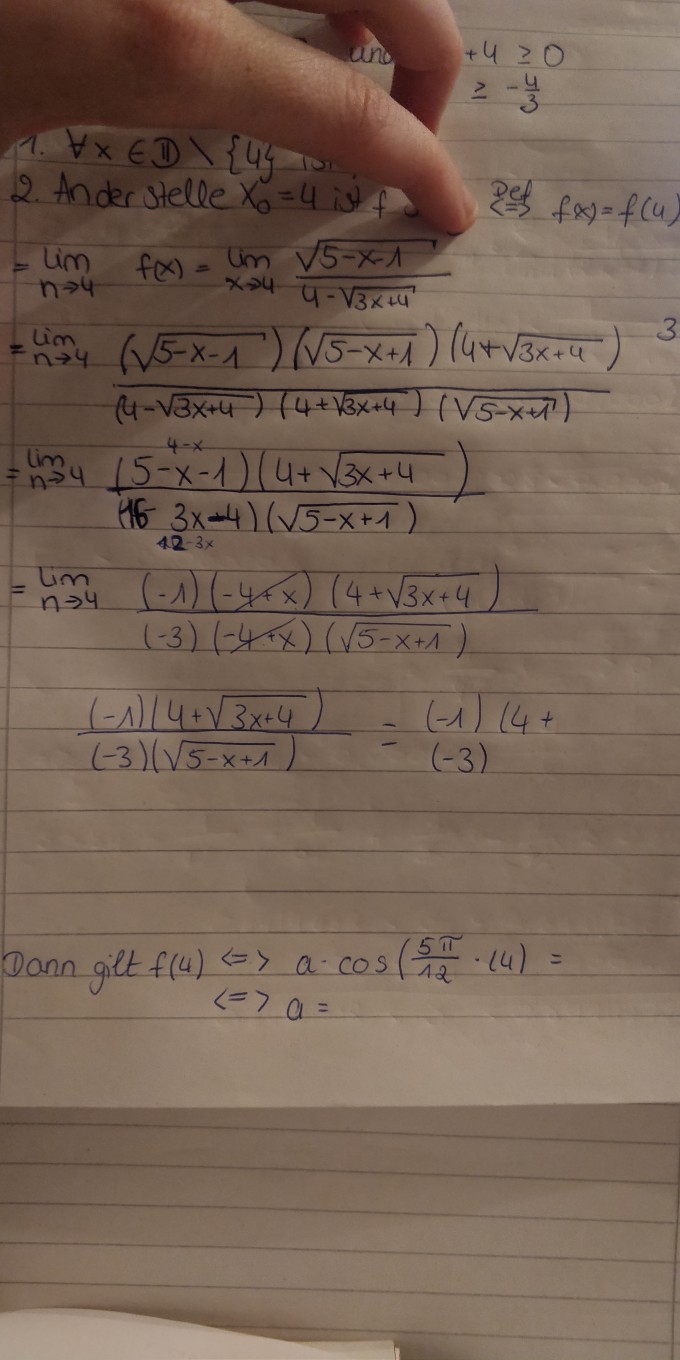 und +4 ≥ 0
≥ -4/3
1. ∀x ∈ D \ {4} ist
2. An der stelle X₀ = 4 ist f Def <=> f(x) = f(4)
= lim n→4 f(x) = lim x→4 √(5-x-1) / (4-√(3x+4))
= lim n→4 (√(5-x-1))(√(5-x+1))(4+√(3x+4)) / (4-√(3x+4))(4+√(3x+4))(√(5-x+1)) 3
4-x
= lim n→4 (5-x-1)(4+√(3x+4)) / (16- 3x-4)(√(5-x+1))
12-3x
= lim n→4 (-1)(-4+x)(4+√(3x+4)) / (-3)(-4+x)(√(5-x+1))
(-1)(4+√(3x+4)) / (-3)(√(5-x+1)) = (-1)(4+ / (-3)
Dann gilt f(4) <=> a·cos(5π/12 · (4) =
<=> a =